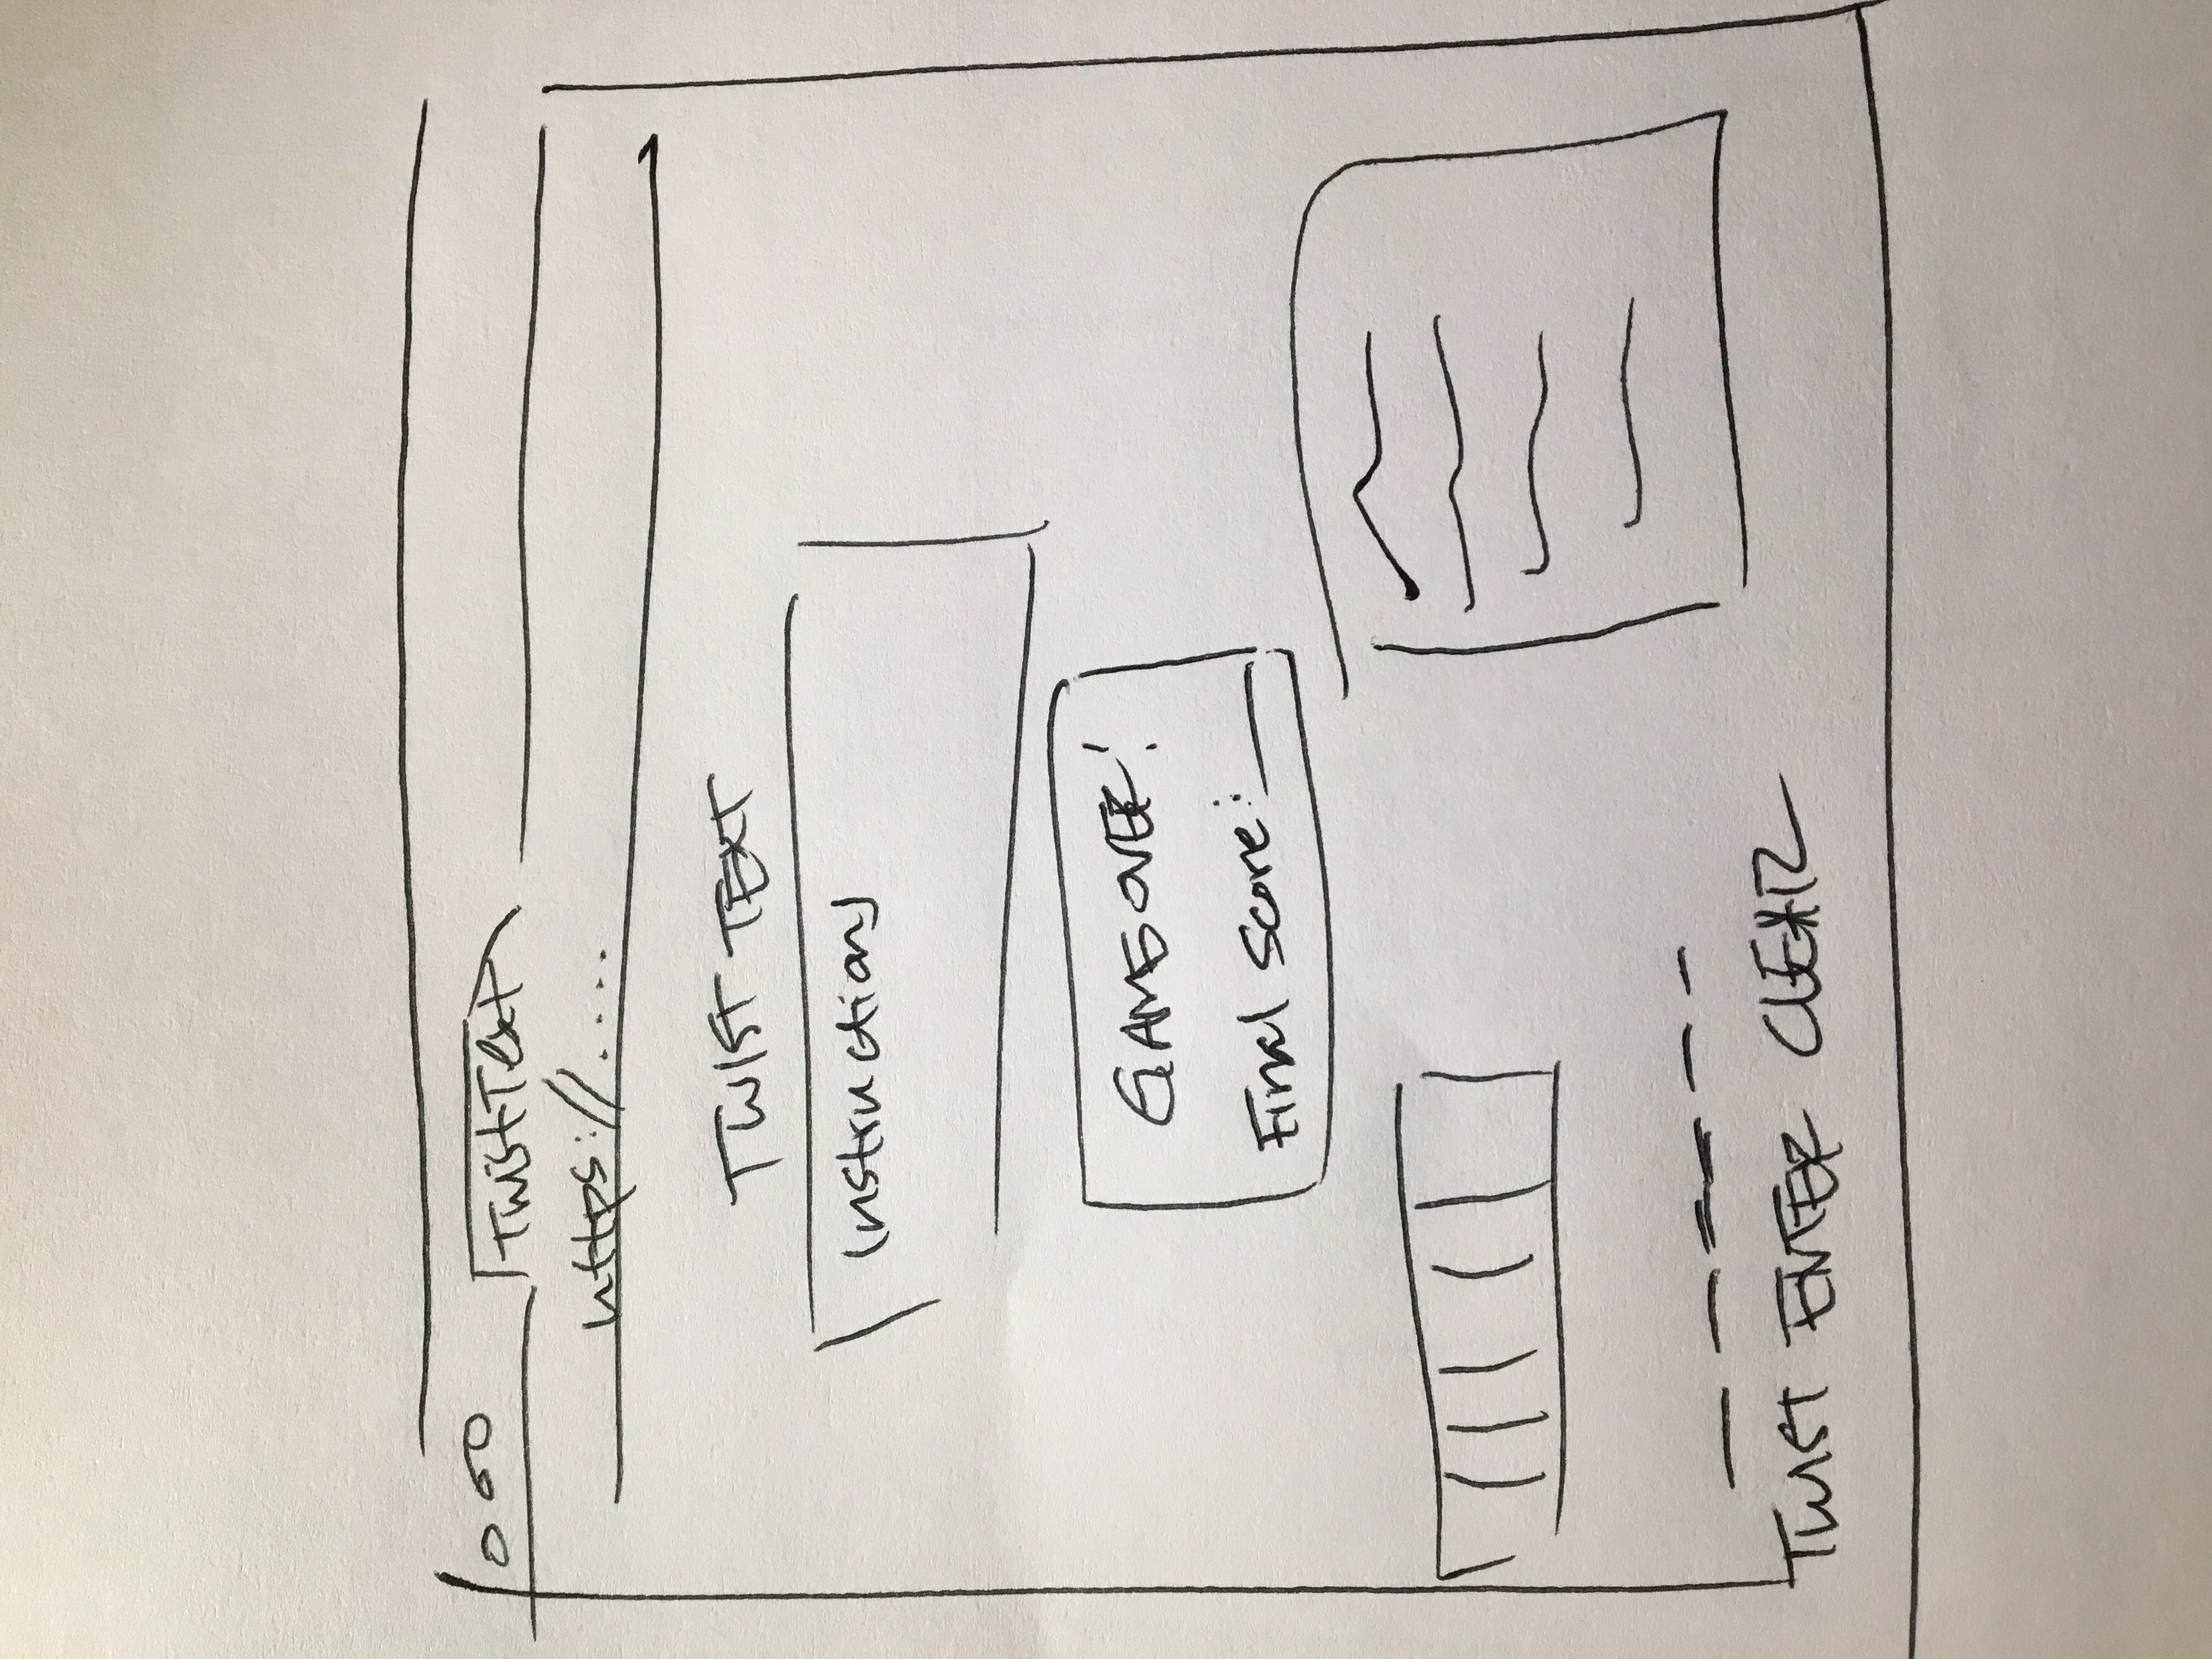 TwistText
https://....
TWIST TEXT
Instructions
GAME OVER!
Final Score:
TWIST ENTER CLEAR